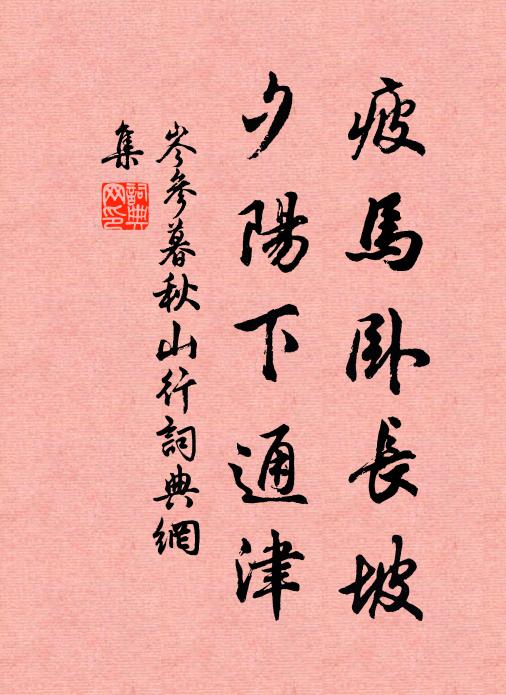 疲馬卧長坡
夕陽下通津
岑參暮秋山行詞典網
集
詞典
网印